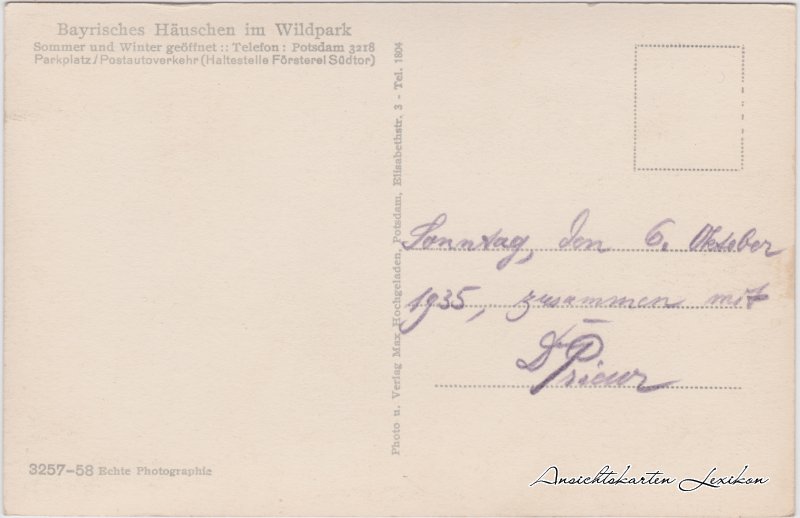 Bayrisches Häuschen im Wildpark
Sommer und Winter geöffnet :: Telefon: Potsdam 3218
Parkplatz/Postautoverkehr (Haltestelle Försterei Südtor)
Photo u. Verlag Max Hochgeladen, Potsdam, Elisabethstr. 3 - Tel. 1804
Sonntag, den 6. Oktober
1935, zusammen mit
Dr Prieur
3257-58 Echte Photographie
Ansichtskarten Lexikon